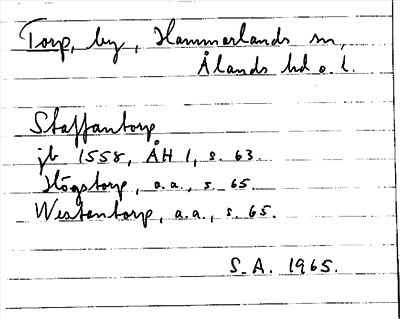 Torp, by, Hammarlands sn,
Ålands hd o. l.
Staffantorp
jb 1558, ÅH 1, s. 63.
Högstorp, a.a., s. 65.
Westantorp, a.a., s. 65.
S.A. 1965.